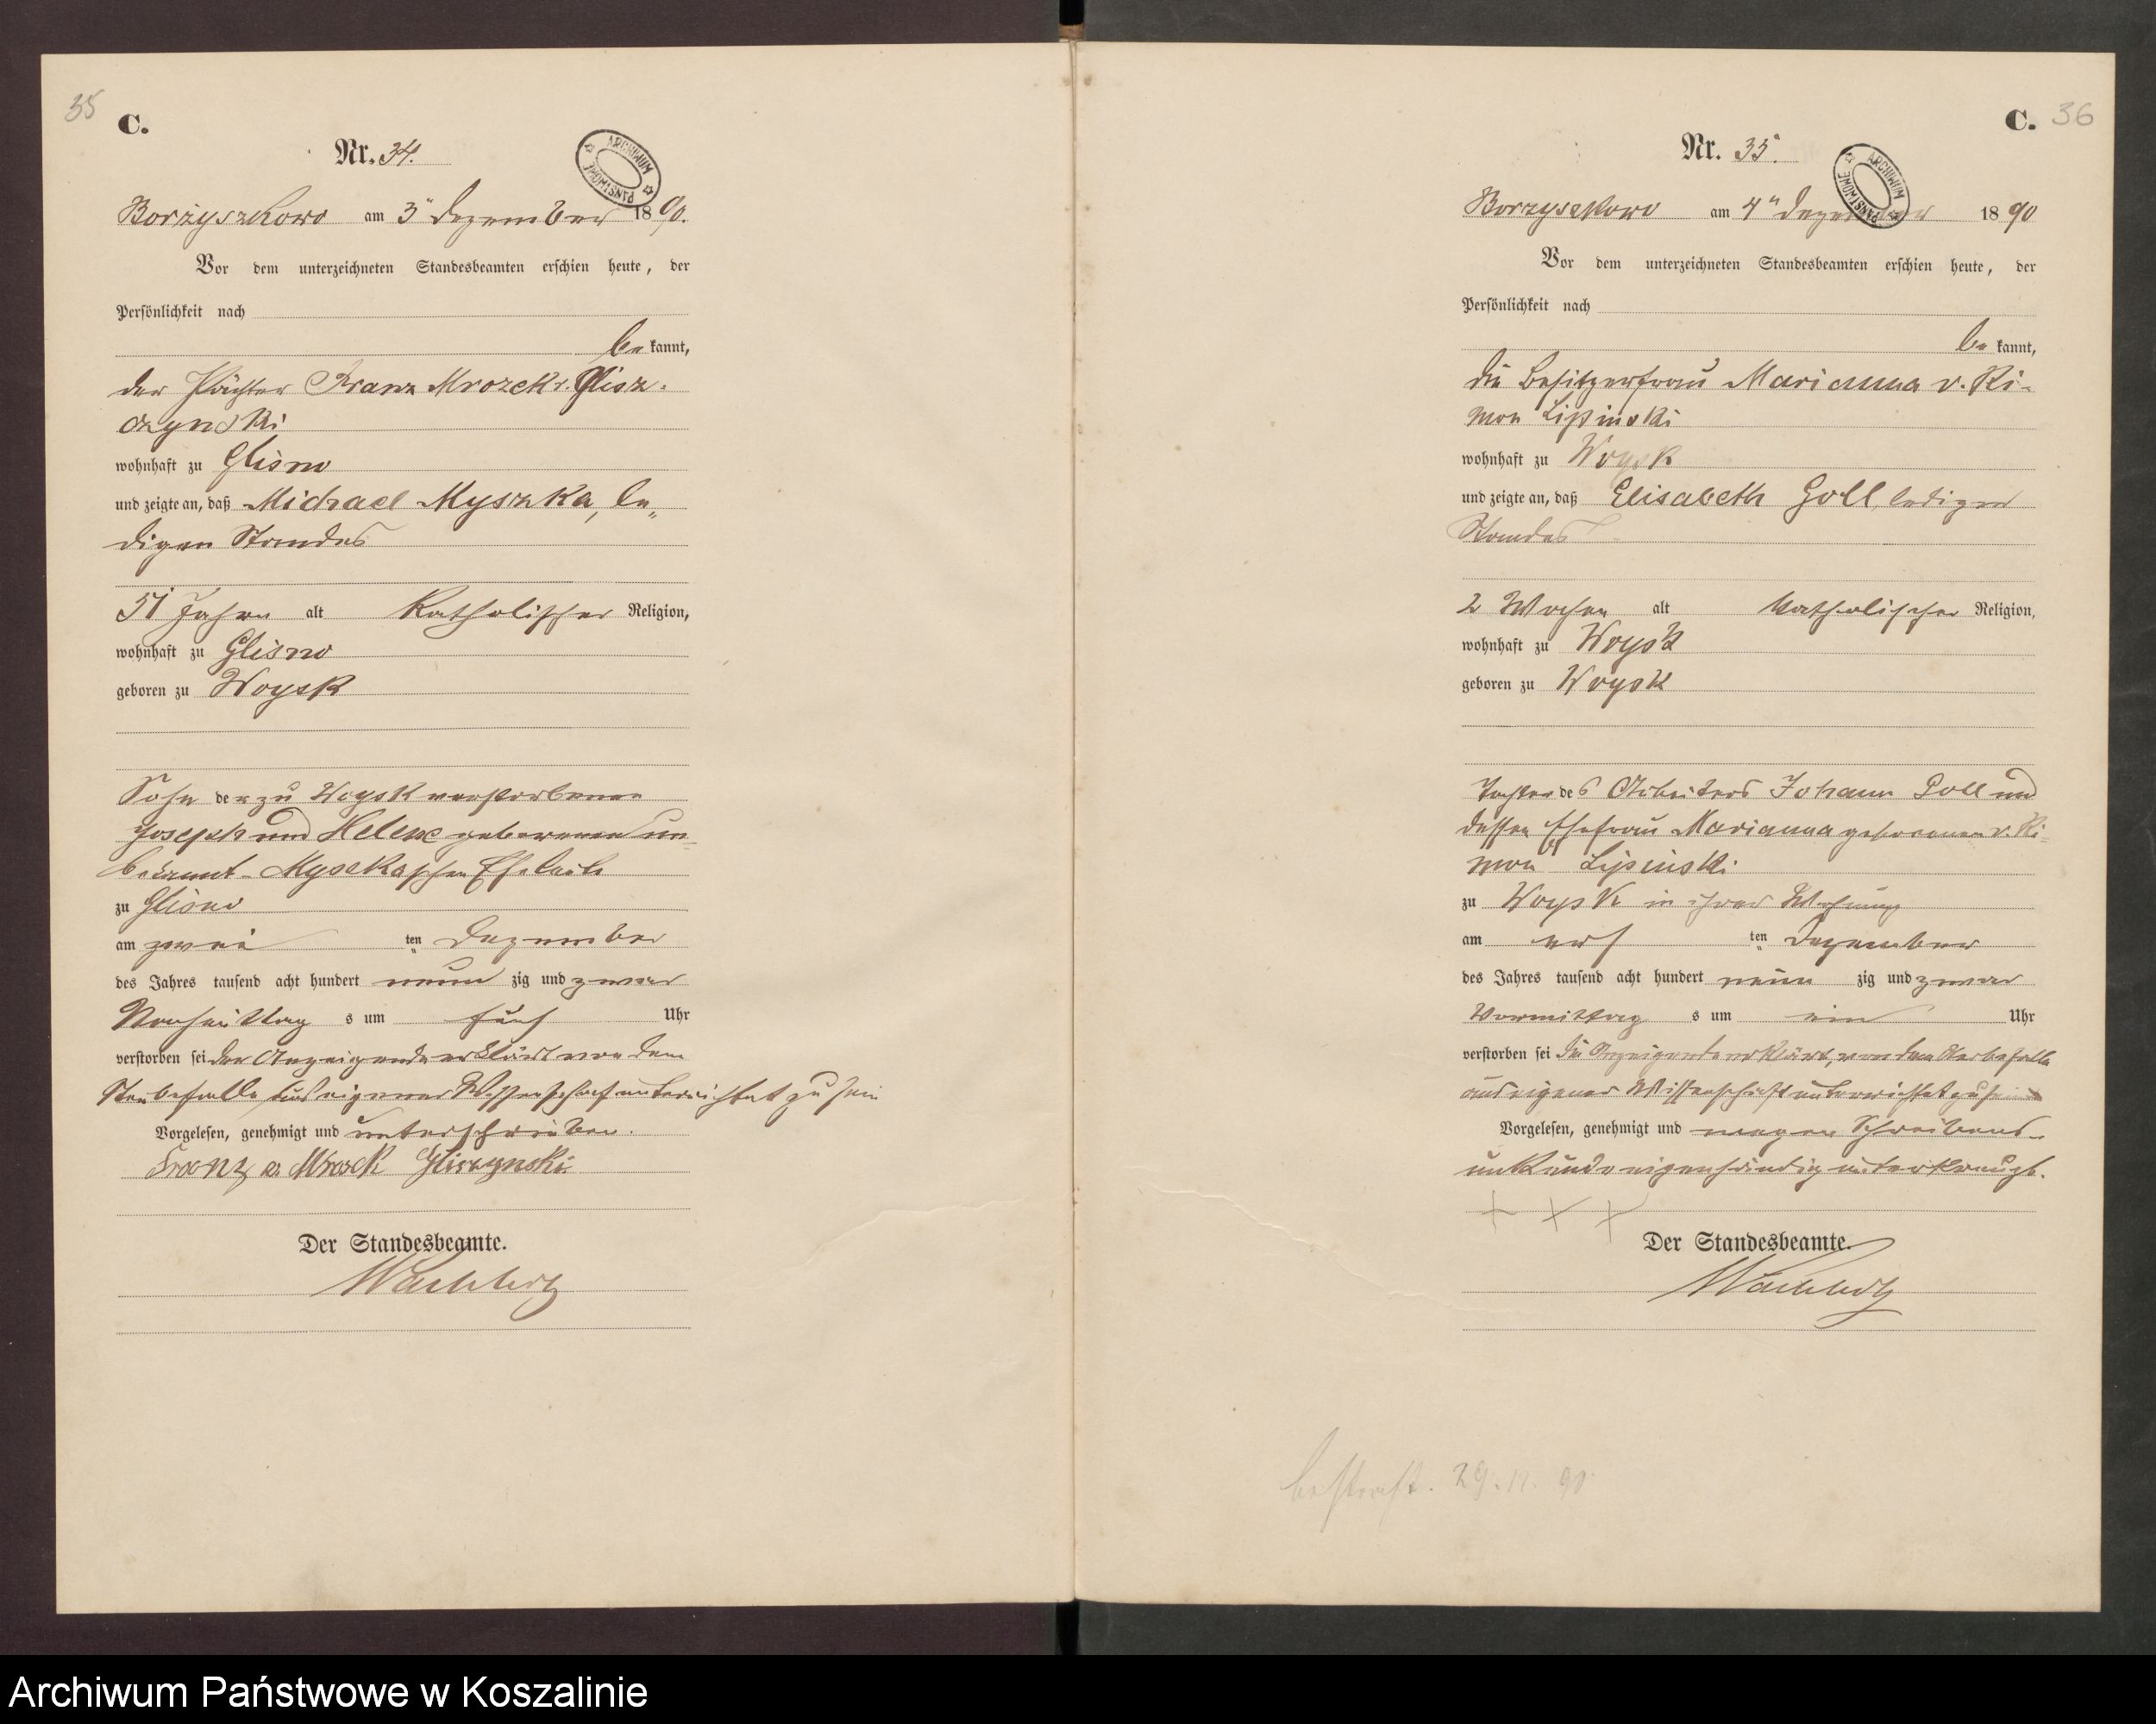 35
C.
Nr. 34.
ARCHIWUM PAŃSTWOWE
Borzyszkowo am 3" Dezember 1890.
Vor dem unterzeichneten Standesbeamten erschien heute, der
Persönlichkeit nach
be kannt,
der Pächter Franz Mrozek v. Glisz-
czynski
wohnhaft zu Glisno
und zeigte an, daß Michael Myszka, le„
digen Standes
51 Jahre alt katholischer Religion,
wohnhaft zu Glisno
geboren zu Woysk
Sohn der zu Woysk verstorbenen
Joseph und Helene geborenen un-
bekannt - Myszkaschen Eheleute
zu Glisno
am zwei ten Dezember
des Jahres tausend acht hundert neun zig und zwar
Nachmittag s um fünf Uhr
verstorben sei der Anzeigende erklärt von dem
Sterbefalle aus eigener Wissenschaft unterrichtet zu sein
Vorgelesen, genehmigt und unterschrieben.
Franz v. Mrozek Gliszynski
Der Standesbeamte.
C. 36
Nr. 35.
ARCHIWUM PAŃSTWOWE
Borzyszkowo am 4" Dezember 1890
Vor dem unterzeichneten Standesbeamten erschien heute, der
Persönlichkeit nach
be kannt,
die Besitzerfrau Marianna v. Ki-
mon Lipinski
wohnhaft zu Woysk
und zeigte an, daß Elisabeth Goll, lediger
Standes
2 Wochen alt katholischer Religion,
wohnhaft zu Woysk
geboren zu Woysk
Tochter des Arbeiters Johann Goll und
dessen Ehefrau Marianna geborenen v. Ki-
mon Lipinski
zu Woysk in ihrer Wohnung
am ers ten Dezember
des Jahres tausend acht hundert neun zig und zwar
Vormittag s um ein Uhr
verstorben sei die Anzeigende erklärt, von dem Sterbefalle
aus eigener Wissenschaft unterrichtet zu sein
Vorgelesen, genehmigt und wegen Schreibens-
unkunde eigenhändig unterkreuzt.
+ + +
Der Standesbeamte.
90
Archiwum Państwowe w Koszalinie